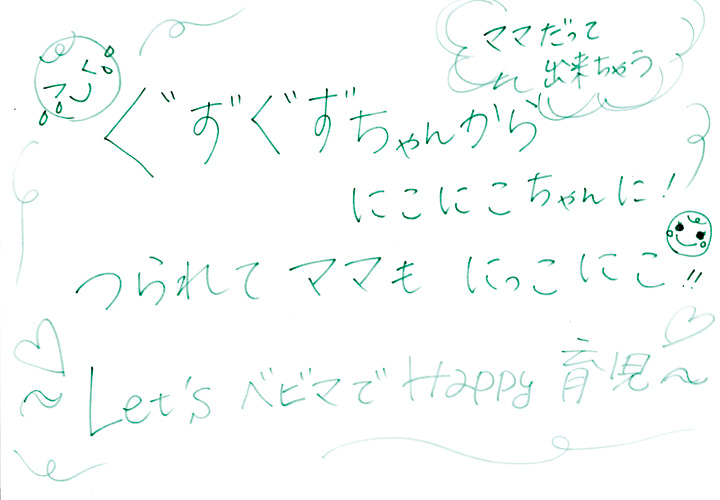 ママだって
出来ちゃう
ぐずぐずちゃんから
にこにこちゃんに!
つられて ママも にっこにこ!!
~Let's ベビマで Happy 育児~